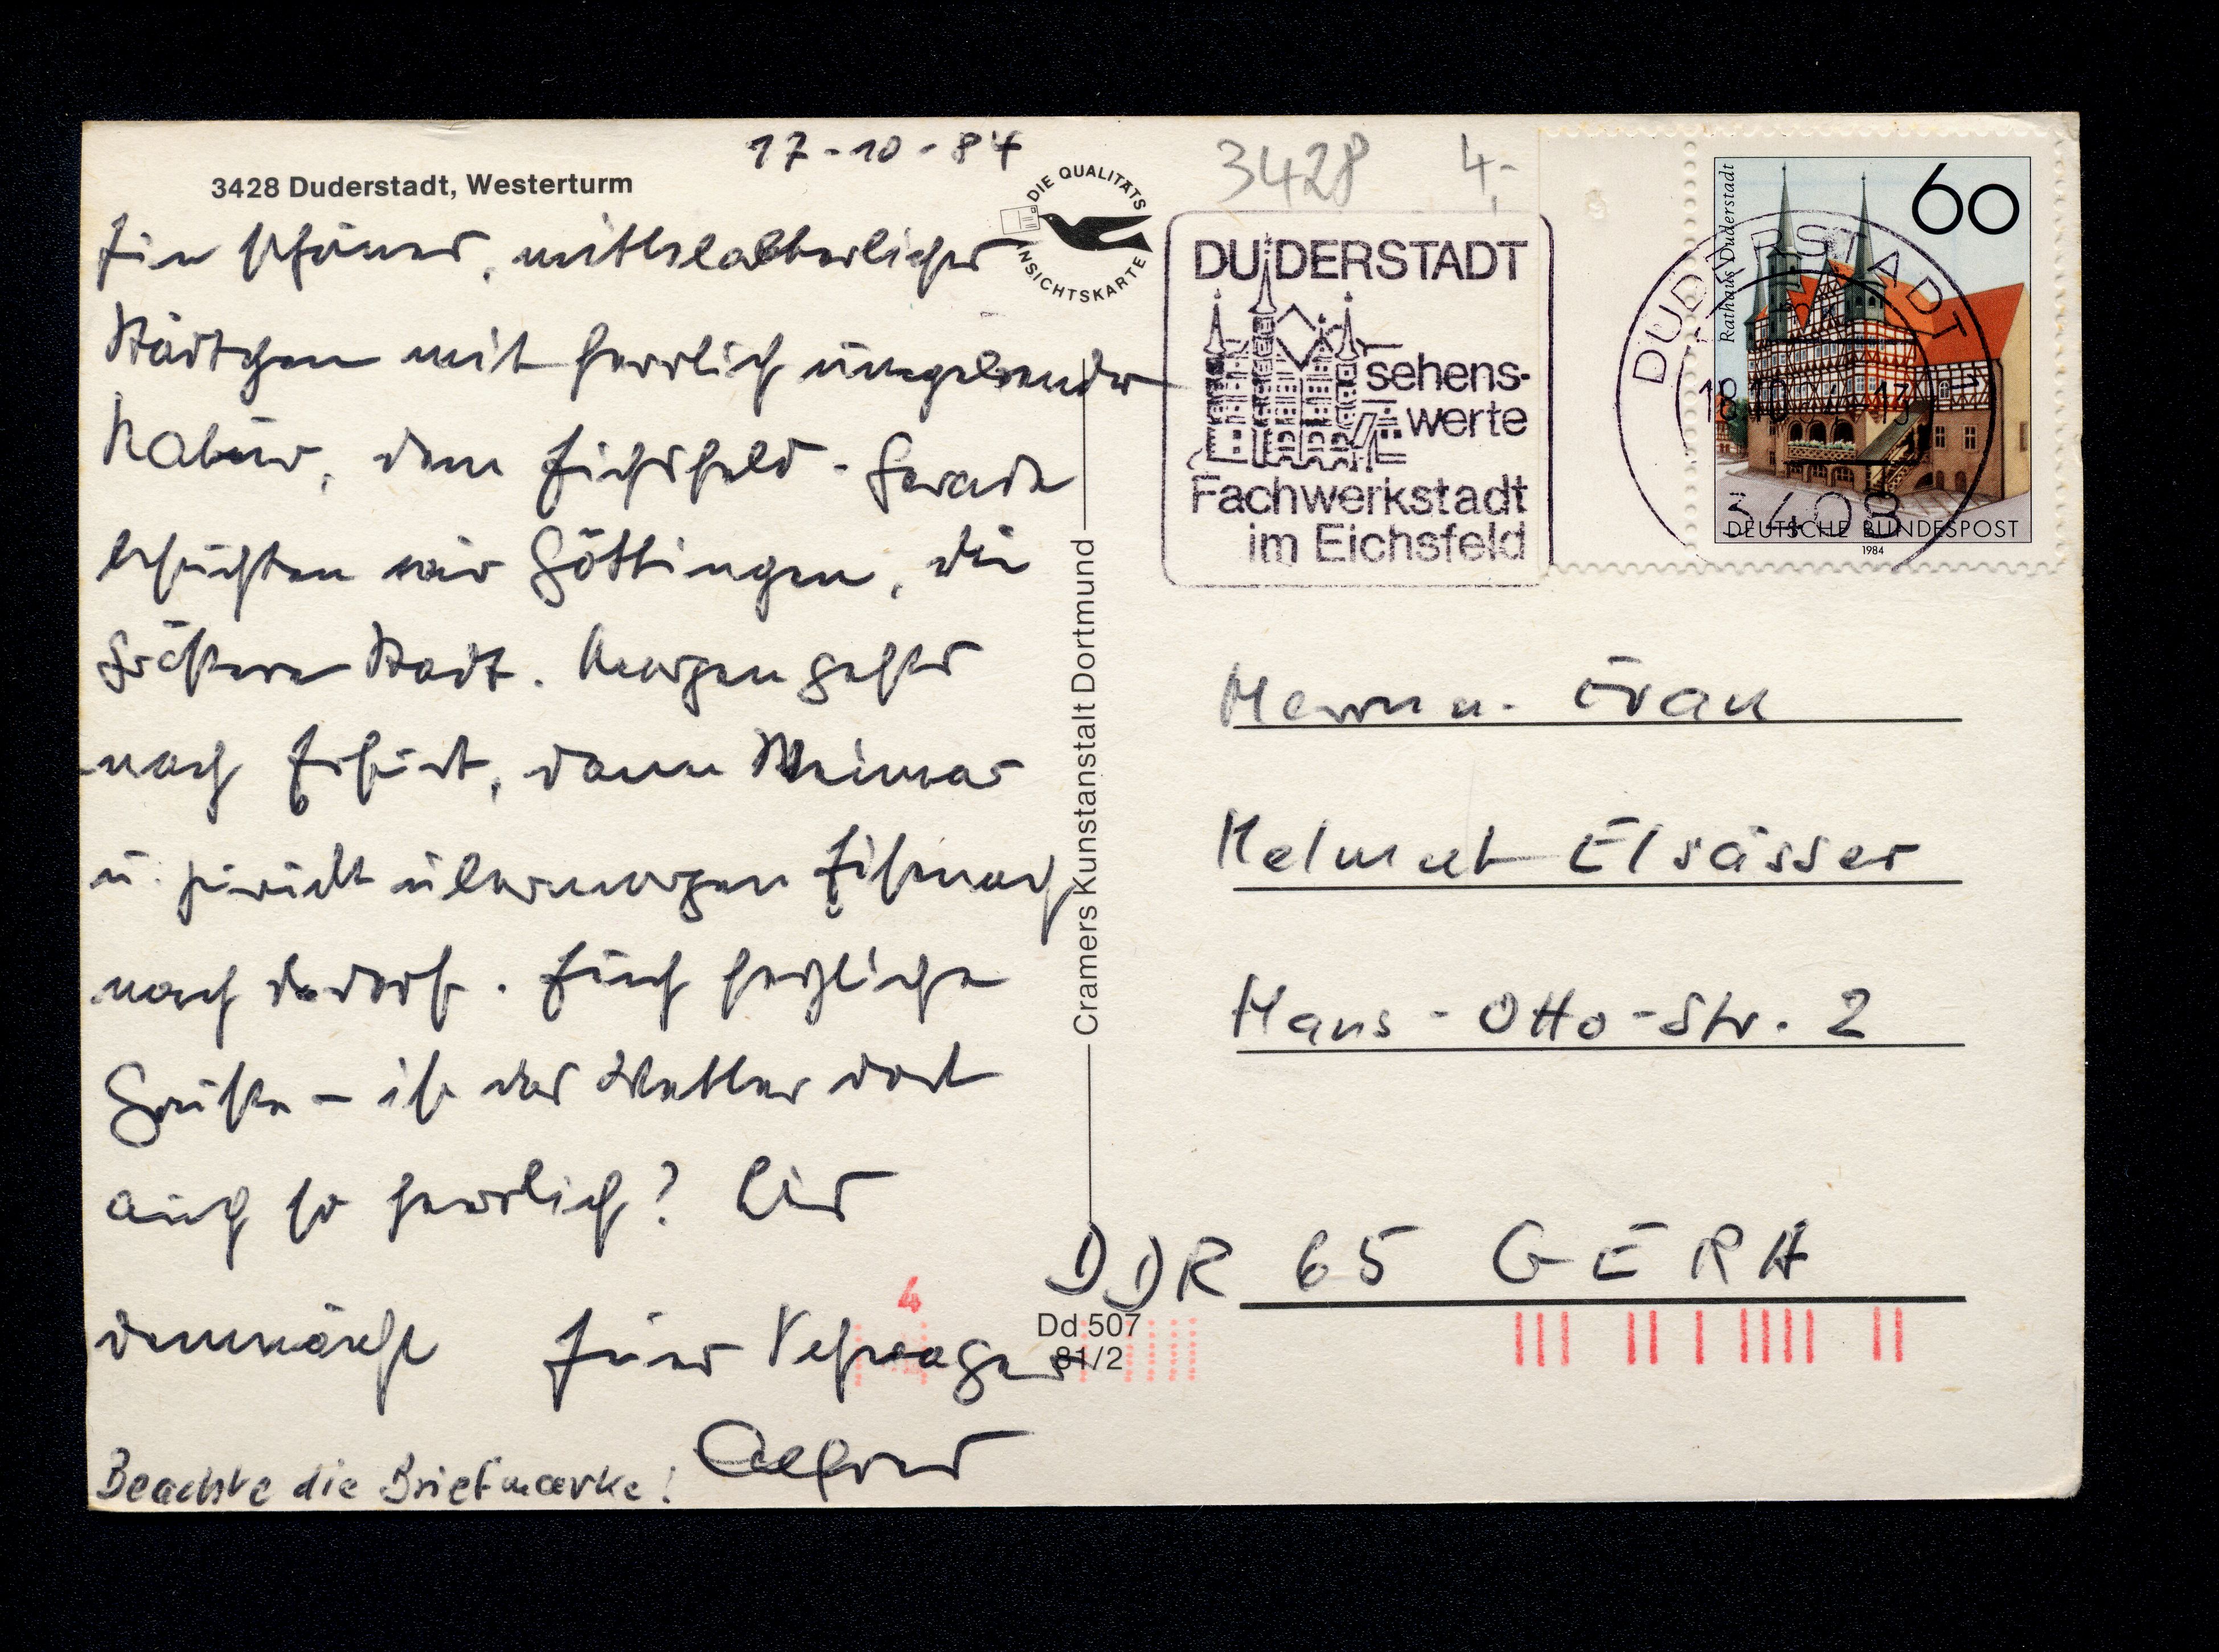 17-10-84
3428 Duderstadt, Westerturm
Ein schönes, mittelalterliches
Städtchen mit herrlich umgebender
Natur, dem Eichsfeld. Gerade
besuchten wir Göttingen, die
größere Stadt. Morgen gehts
nach Erfurt, dann Weimar
u. zurück übermorgen Eisenach
nach
Euch herzliche
Grüße – ist das Wetter dort
auch so herrlich? Bis
demnächst Euer
Alfred
Beachte die Briefmarke!
DIE QUALITÄTS
ANSICHTSKARTE
Cramers Kunstanstalt Dortmund
Dd 507
81/2
4
3428 4,-
DUDERSTADT
sehens-
werte
Fachwerkstadt
im Eichsfeld
DUDERSTADT 1
18.10. 13
3408
Rathaus Duderstadt
60
DEUTSCHE BUNDESPOST
1984
Herrn u. Frau
Helmut Elsässer
Hans-Otto-Str. 2
DDR 65 GERA